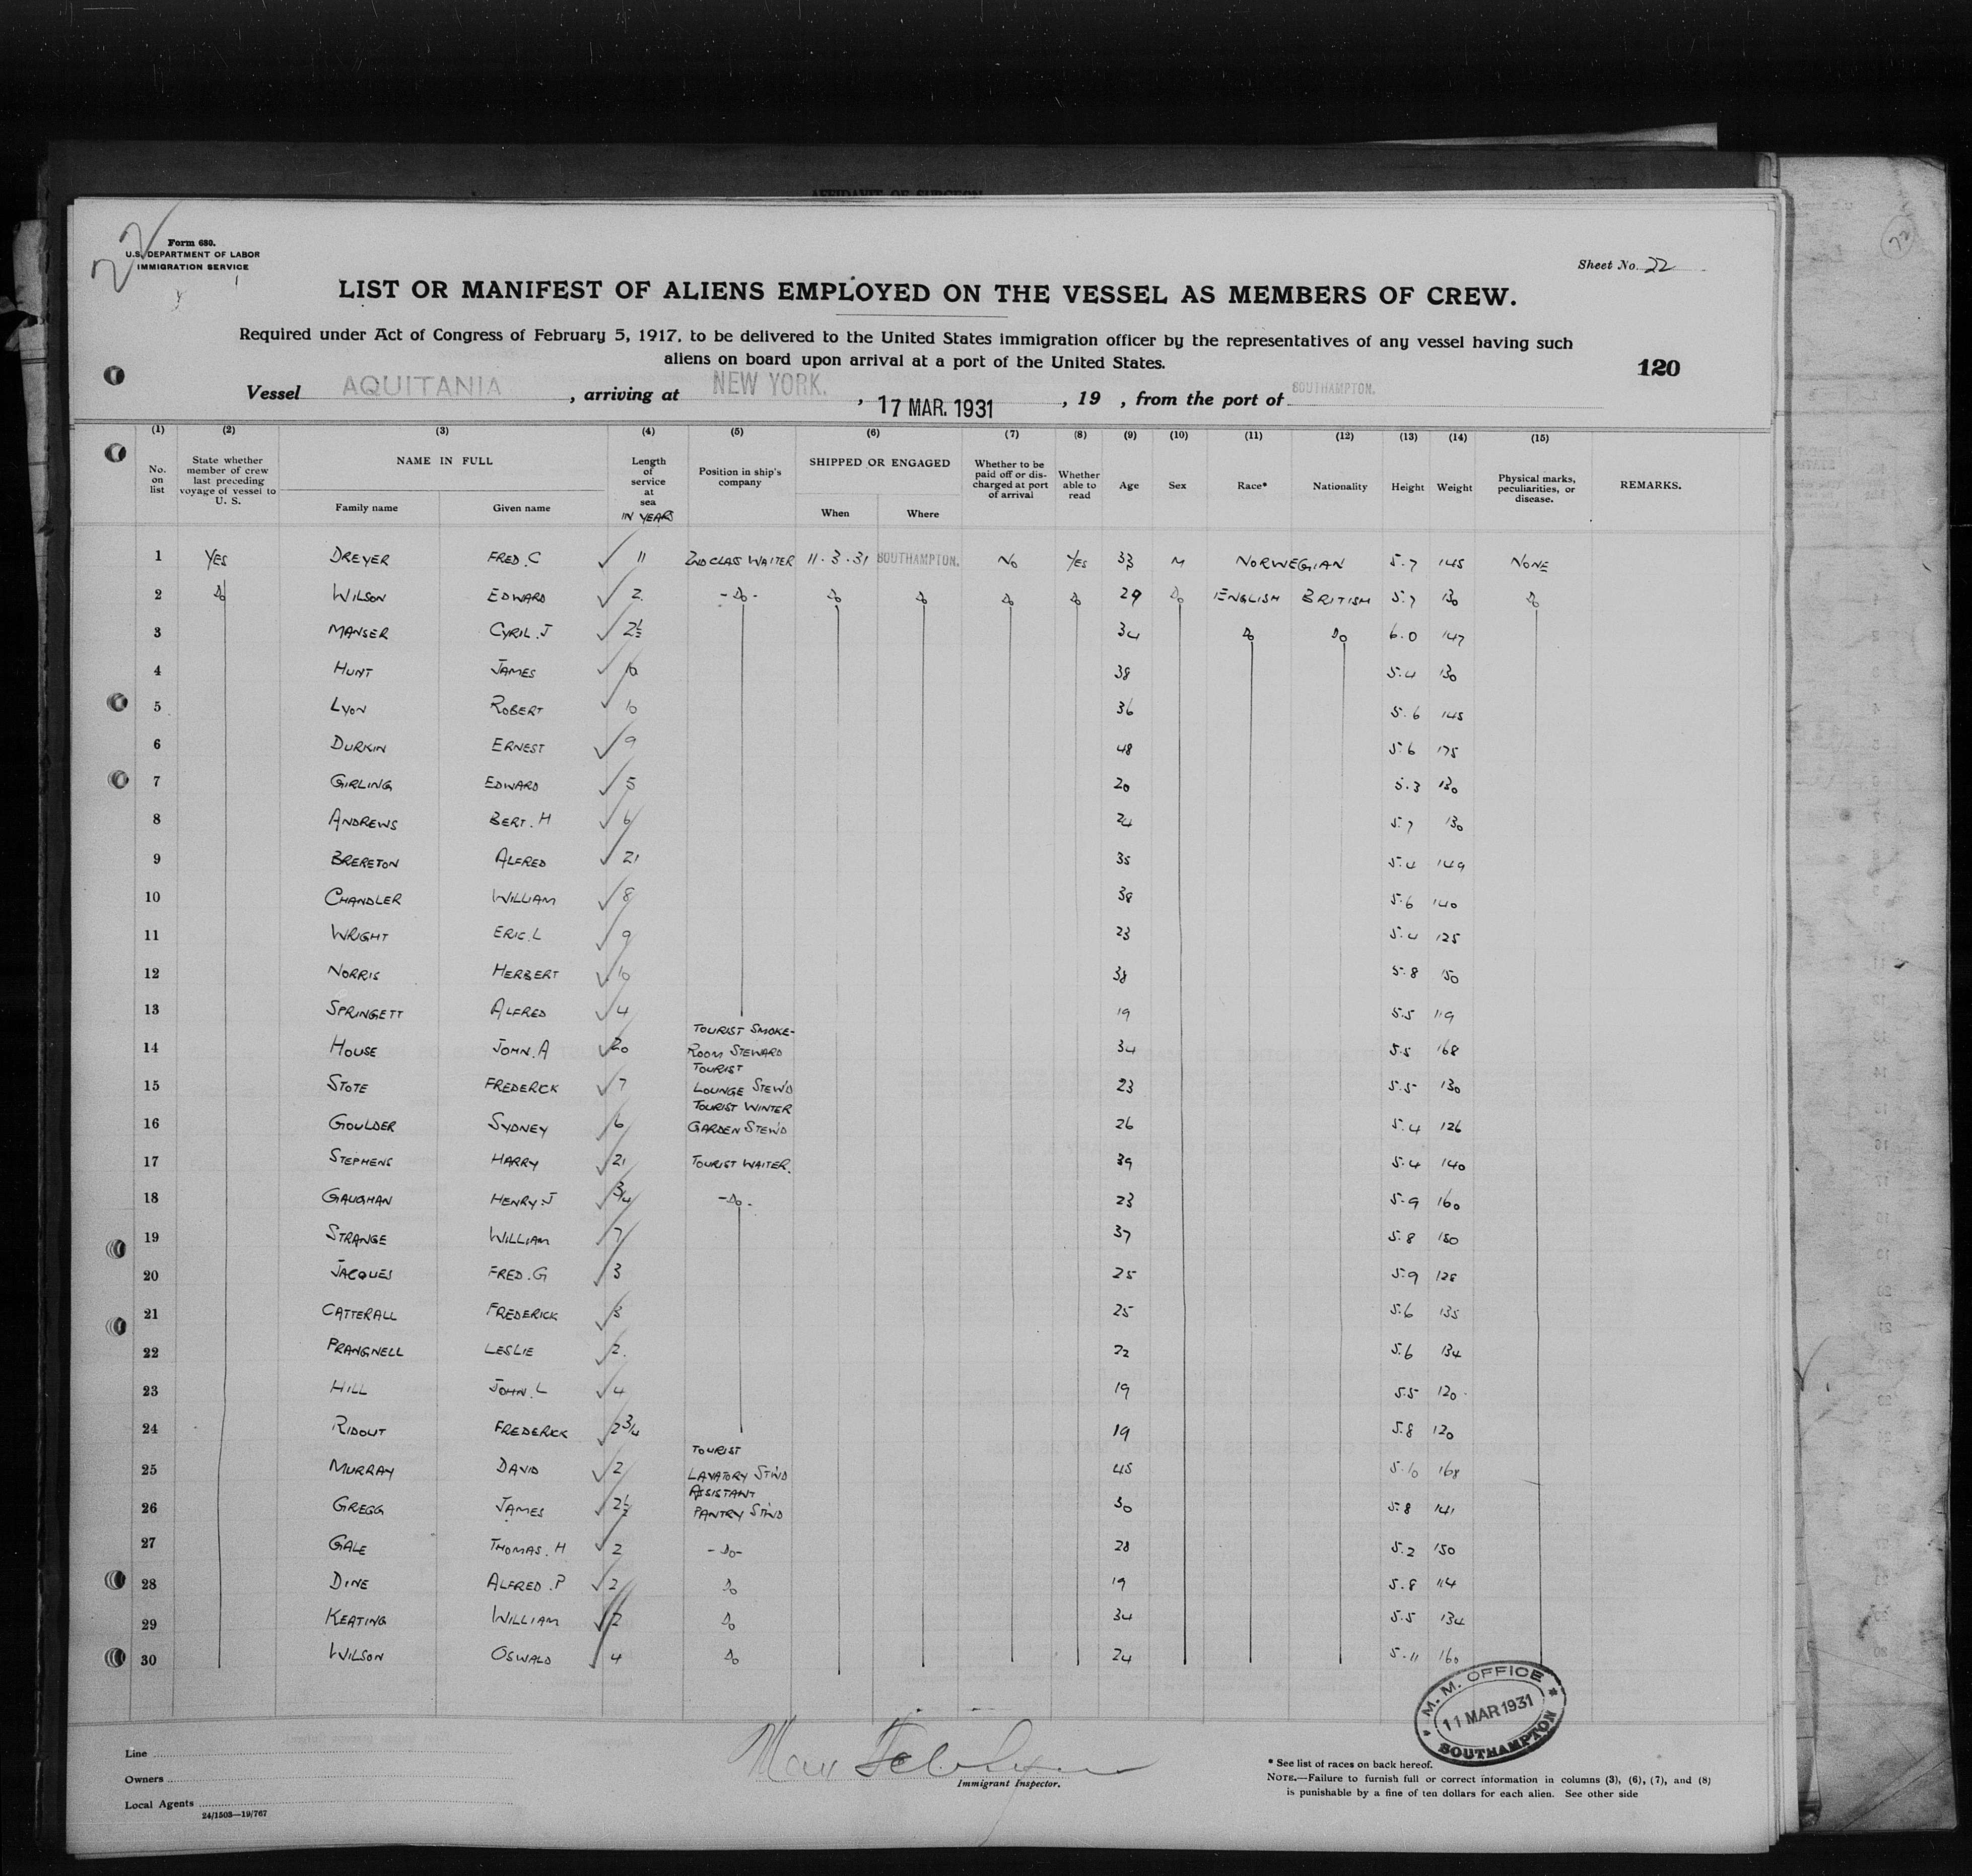 AFFIDAVIT OF SURGEON
22
Form 680.
U.S. DEPARTMENT OF LABOR
IMMIGRATION SERVICE
Sheet No. 22
LIST OR MANIFEST OF ALIENS EMPLOYED ON THE VESSEL AS MEMBERS OF CREW.
Required under Act of Congress of February 5, 1917, to be delivered to the United States immigration officer by the representatives of any vessel having such
aliens on board upon arrival at a port of the United States.
120
Vessel AQUITANIA, arriving at NEW YORK., 17 MAR. 1931, 19 , from the port of SOUTHAMPTON.
(1) (2) (3) (4) (5) (6) (7) (8) (9) (10) (11) (12) (13) (14) (15)
No. on list State whether member of crew last preceding voyage of vessel to U. S. NAME IN FULL Family name Given name Length of service at sea IN YEARS Position in ship's company SHIPPED OR ENGAGED When Where Whether to be paid off or discharged at port of arrival Whether able to read Age Sex Race* Nationality Height Weight Physical marks, peculiarities, or disease. REMARKS.
1 YES DREYER FRED. C 11 2ND CLASS WAITER 11.3.31 SOUTHAMPTON. NO YES 33 M NORWEGIAN 5.7 145 NONE
2 Do WILSON EDWARD 2 -Do- Do Do Do Do 29 Do ENGLISH BRITISH 5.7 130 Do
3 MANSER CYRIL. J 2½ 34 Do Do 6.0 147
4 HUNT JAMES 10 38 5.4 130
5 LYON ROBERT 10 36 5.6 145
6 DURKIN ERNEST 9 48 5.6 175
7 GIRLING EDWARD 5 20 5.3 130
8 ANDREWS BERT. H 6 24 5.7 130
9 BRERETON ALFRED 21 35 5.4 149
10 CHANDLER WILLIAM 8 38 5.6 140
11 WRIGHT ERIC. L 9 23 5.4 125
12 NORRIS HERBERT 10 38 5.8 150
13 SPRINGETT ALFRED 4 19 5.5 119
14 HOUSE JOHN. A 20 TOURIST SMOKE-ROOM STEWARD 34 5.5 168
15 STOTE FREDERICK 7 TOURIST LOUNGE STEWD 23 5.5 130
16 GOULDER SYDNEY 6 TOURIST WINTER GARDEN STEWD 26 5.4 126
17 STEPHENS HARRY 21 TOURIST WAITER. 39 5.4 140
18 GAUGHAN HENRY. J ¾ -Do- 23 5.9 160
19 STRANGE WILLIAM 7 37 5.8 150
20 JACQUES FRED. G 3 25 5.9 128
21 CATTERALL FREDERICK 3 25 5.6 135
22 PRANGNELL LESLIE 2. 22 5.6 134
23 HILL JOHN. L 4 19 5.5 120
24 RIDOUT FREDERICK 2¾ 19 5.8 120
25 MURRAY DAVID 2 TOURIST LAVATORY STWD 45 5.10 168
26 GREGG JAMES 2½ ASSISTANT PANTRY STWD 30 5.8 141
27 GALE THOMAS. H 2 -Do- 28 5.2 150
28 DINE ALFRED. P 2 Do 19 5.8 114
29 KEATING WILLIAM 2 Do 34 5.5 134
30 WILSON OSWALD 4 Do 24 5.11 160
M. M. OFFICE
11 MAR 1931
SOUTHAMPTON
Line
Owners
Local Agents
24/1503—19/767
Immigrant Inspector.
* See list of races on back hereof.
NOTE.—Failure to furnish full or correct information in columns (3), (6), (7), and (8)
is punishable by a fine of ten dollars for each alien. See other side